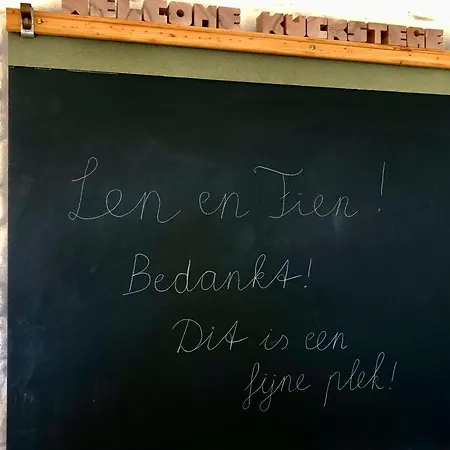 WELCOME KUCKSTEGE
Len en Fien!
Bedankt!
Dit is een
fijne plek!